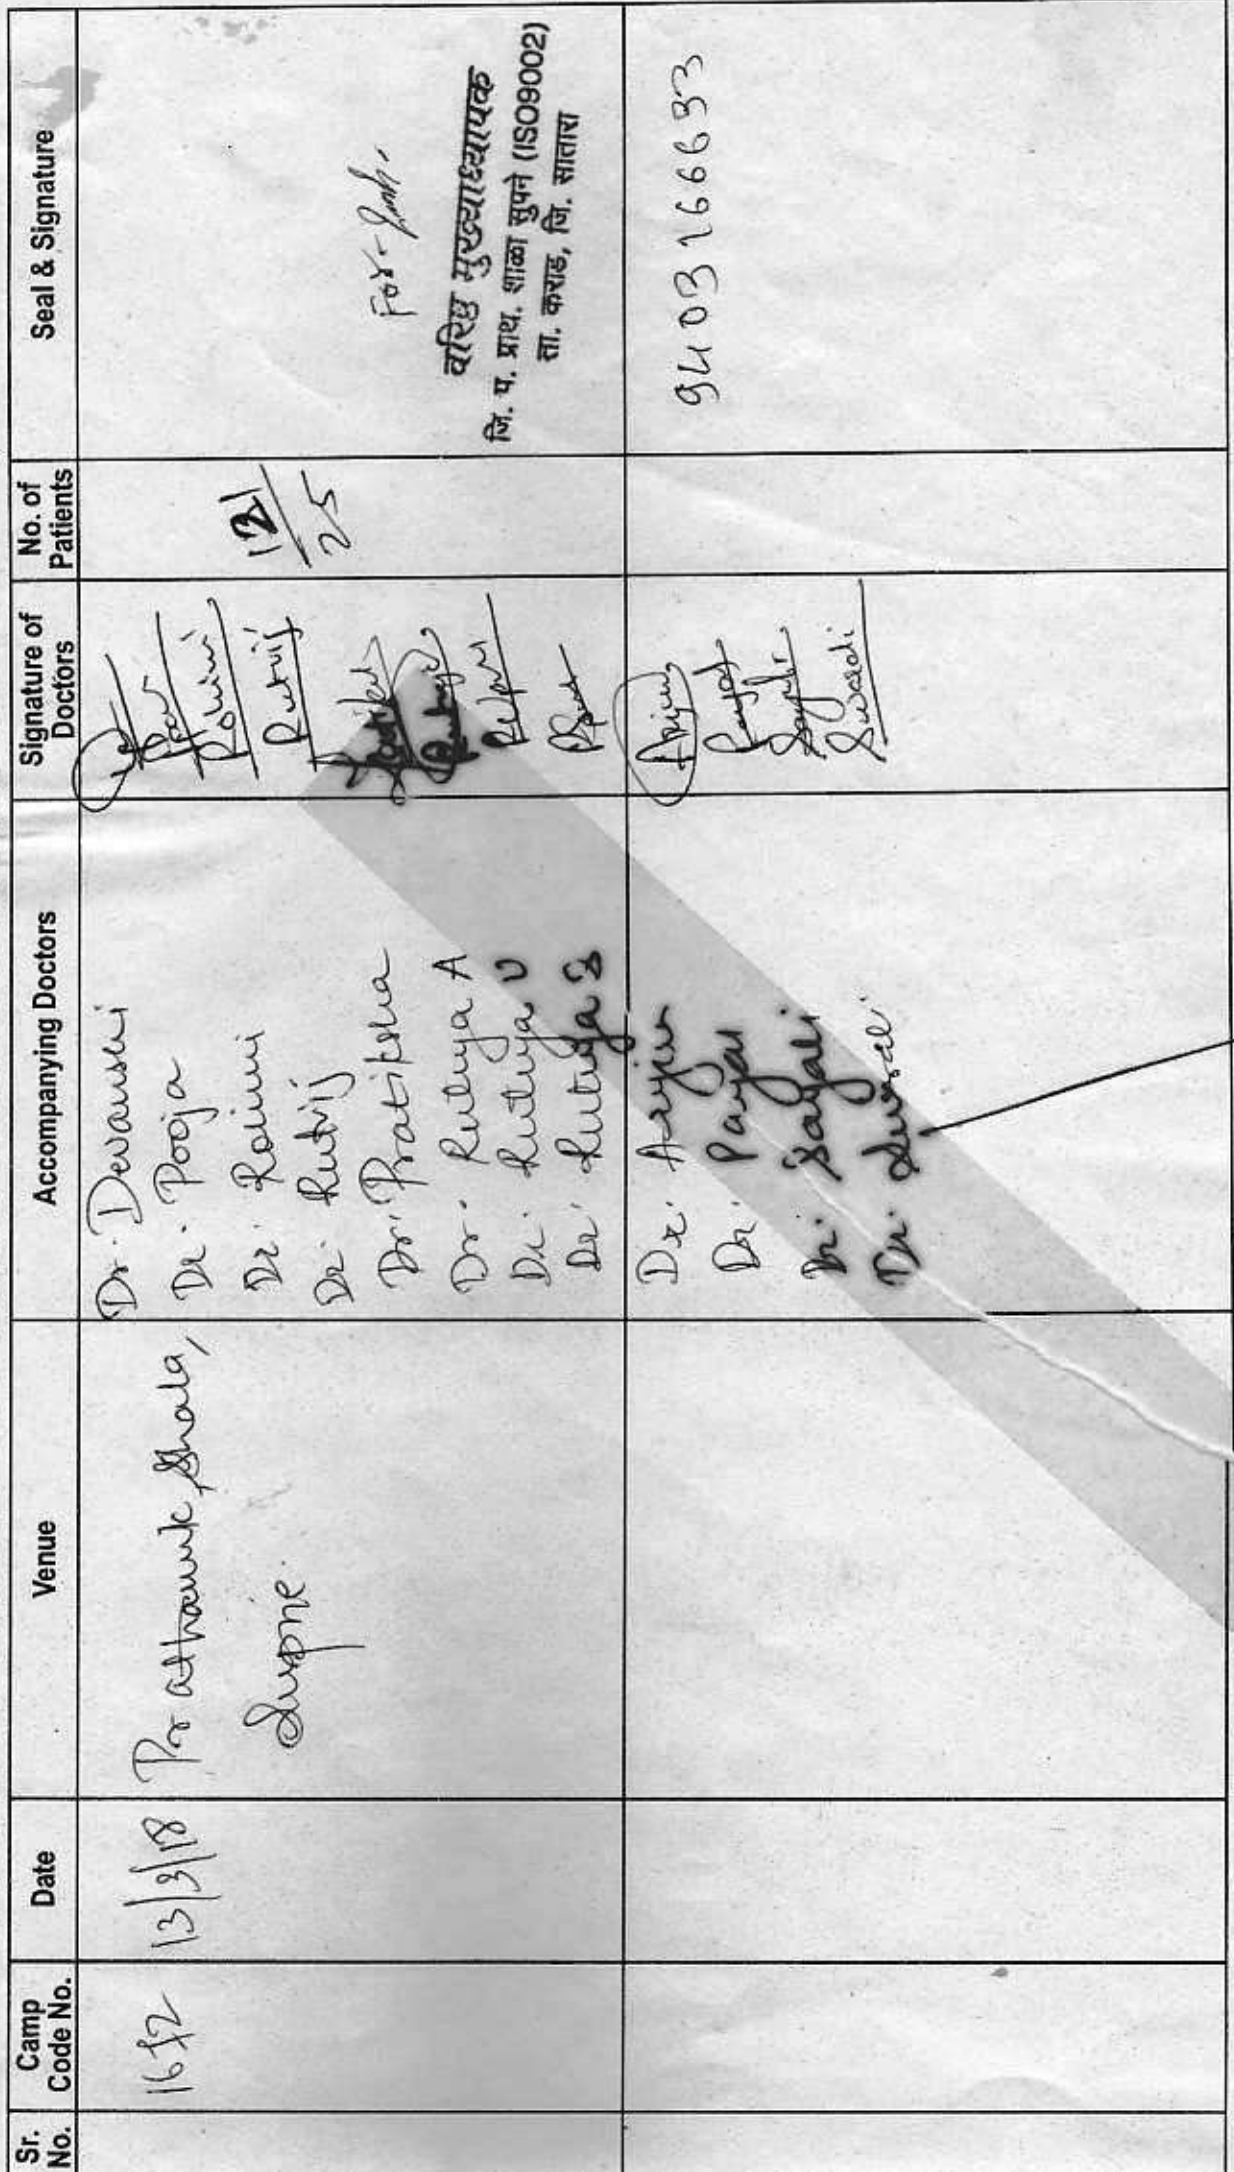 Sr. No.
Camp Code No.
Date
Venue
Accompanying Doctors
Signature of Doctors
No. of Patients
Seal & Signature
13/3/18
Prathamik Shala,
Supne
Dr. Devanshi
Dr. Pooja
Dr. Rohini
Dr. Rutvij
Dr. Pratiksha
Dr. Rutuja A
Dr. Rutuja U
Dr. Rutuja S
Rohini
Rutvij
121
25
For-
वरिष्ठ मुख्याध्यापक
जि. प. प्राथ. शाळा सुपने (ISO9002)
ता. कराड, जि. सातारा
Dr. Arjun
Dr. Payal
Dr. Sayali
Dr.
Arjun
Payal
9403166633